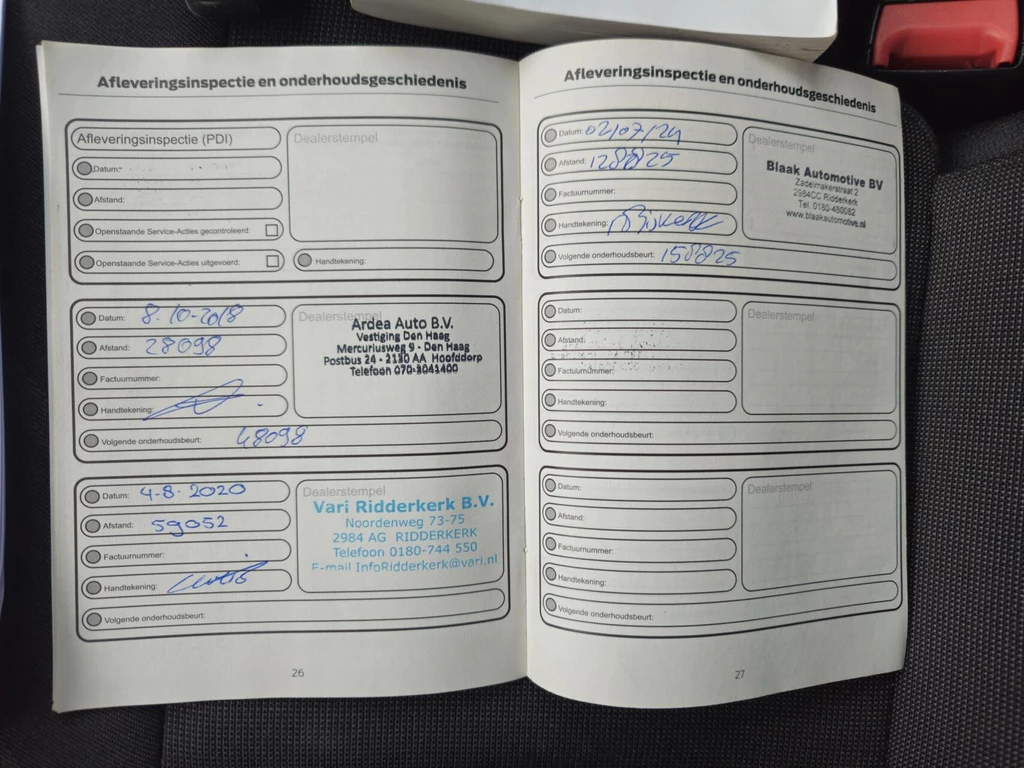 Afleveringsinspectie en onderhoudsgeschiedenis
Afleveringsinspectie (PDI)
Dealerstempel
Datum:
Afstand:
Openstaande Service-Acties gecontroleerd:
Openstaande Service-Acties uitgevoerd:
Handtekening:
Datum: 8-10-2018
Dealerstempel
Ardea Auto B.V.
Vestiging Den Haag
Mercuriusweg 9 - Den Haag
Postbus 24 - 2130 AA Hoofddorp
Telefoon 070-3041400
Afstand: 28098
Factuurnummer:
Handtekening:
Volgende onderhoudsbeurt: 48098
Datum: 4-8-2020
Dealerstempel
Vari Ridderkerk B.V.
Noordenweg 73-75
2984 AG RIDDERKERK
Telefoon 0180-744 550
E-mail InfoRidderkerk@vari.nl
Afstand: 59052
Factuurnummer:
Handtekening:
Volgende onderhoudsbeurt:
26
Afleveringsinspectie en onderhoudsgeschiedenis
Datum: 02/07/24
Dealerstempel
Blaak Automotive BV
Zadelmakerstraat 2
2984CC Ridderkerk
Tel. 0180-480082
www.blaakautomotive.nl
Afstand: 128825
Factuurnummer:
Handtekening:
Volgende onderhoudsbeurt: 158825
Datum:
Dealerstempel
Afstand:
Factuurnummer:
Handtekening:
Volgende onderhoudsbeurt:
Datum:
Dealerstempel
Afstand:
Factuurnummer:
Handtekening:
Volgende onderhoudsbeurt:
27